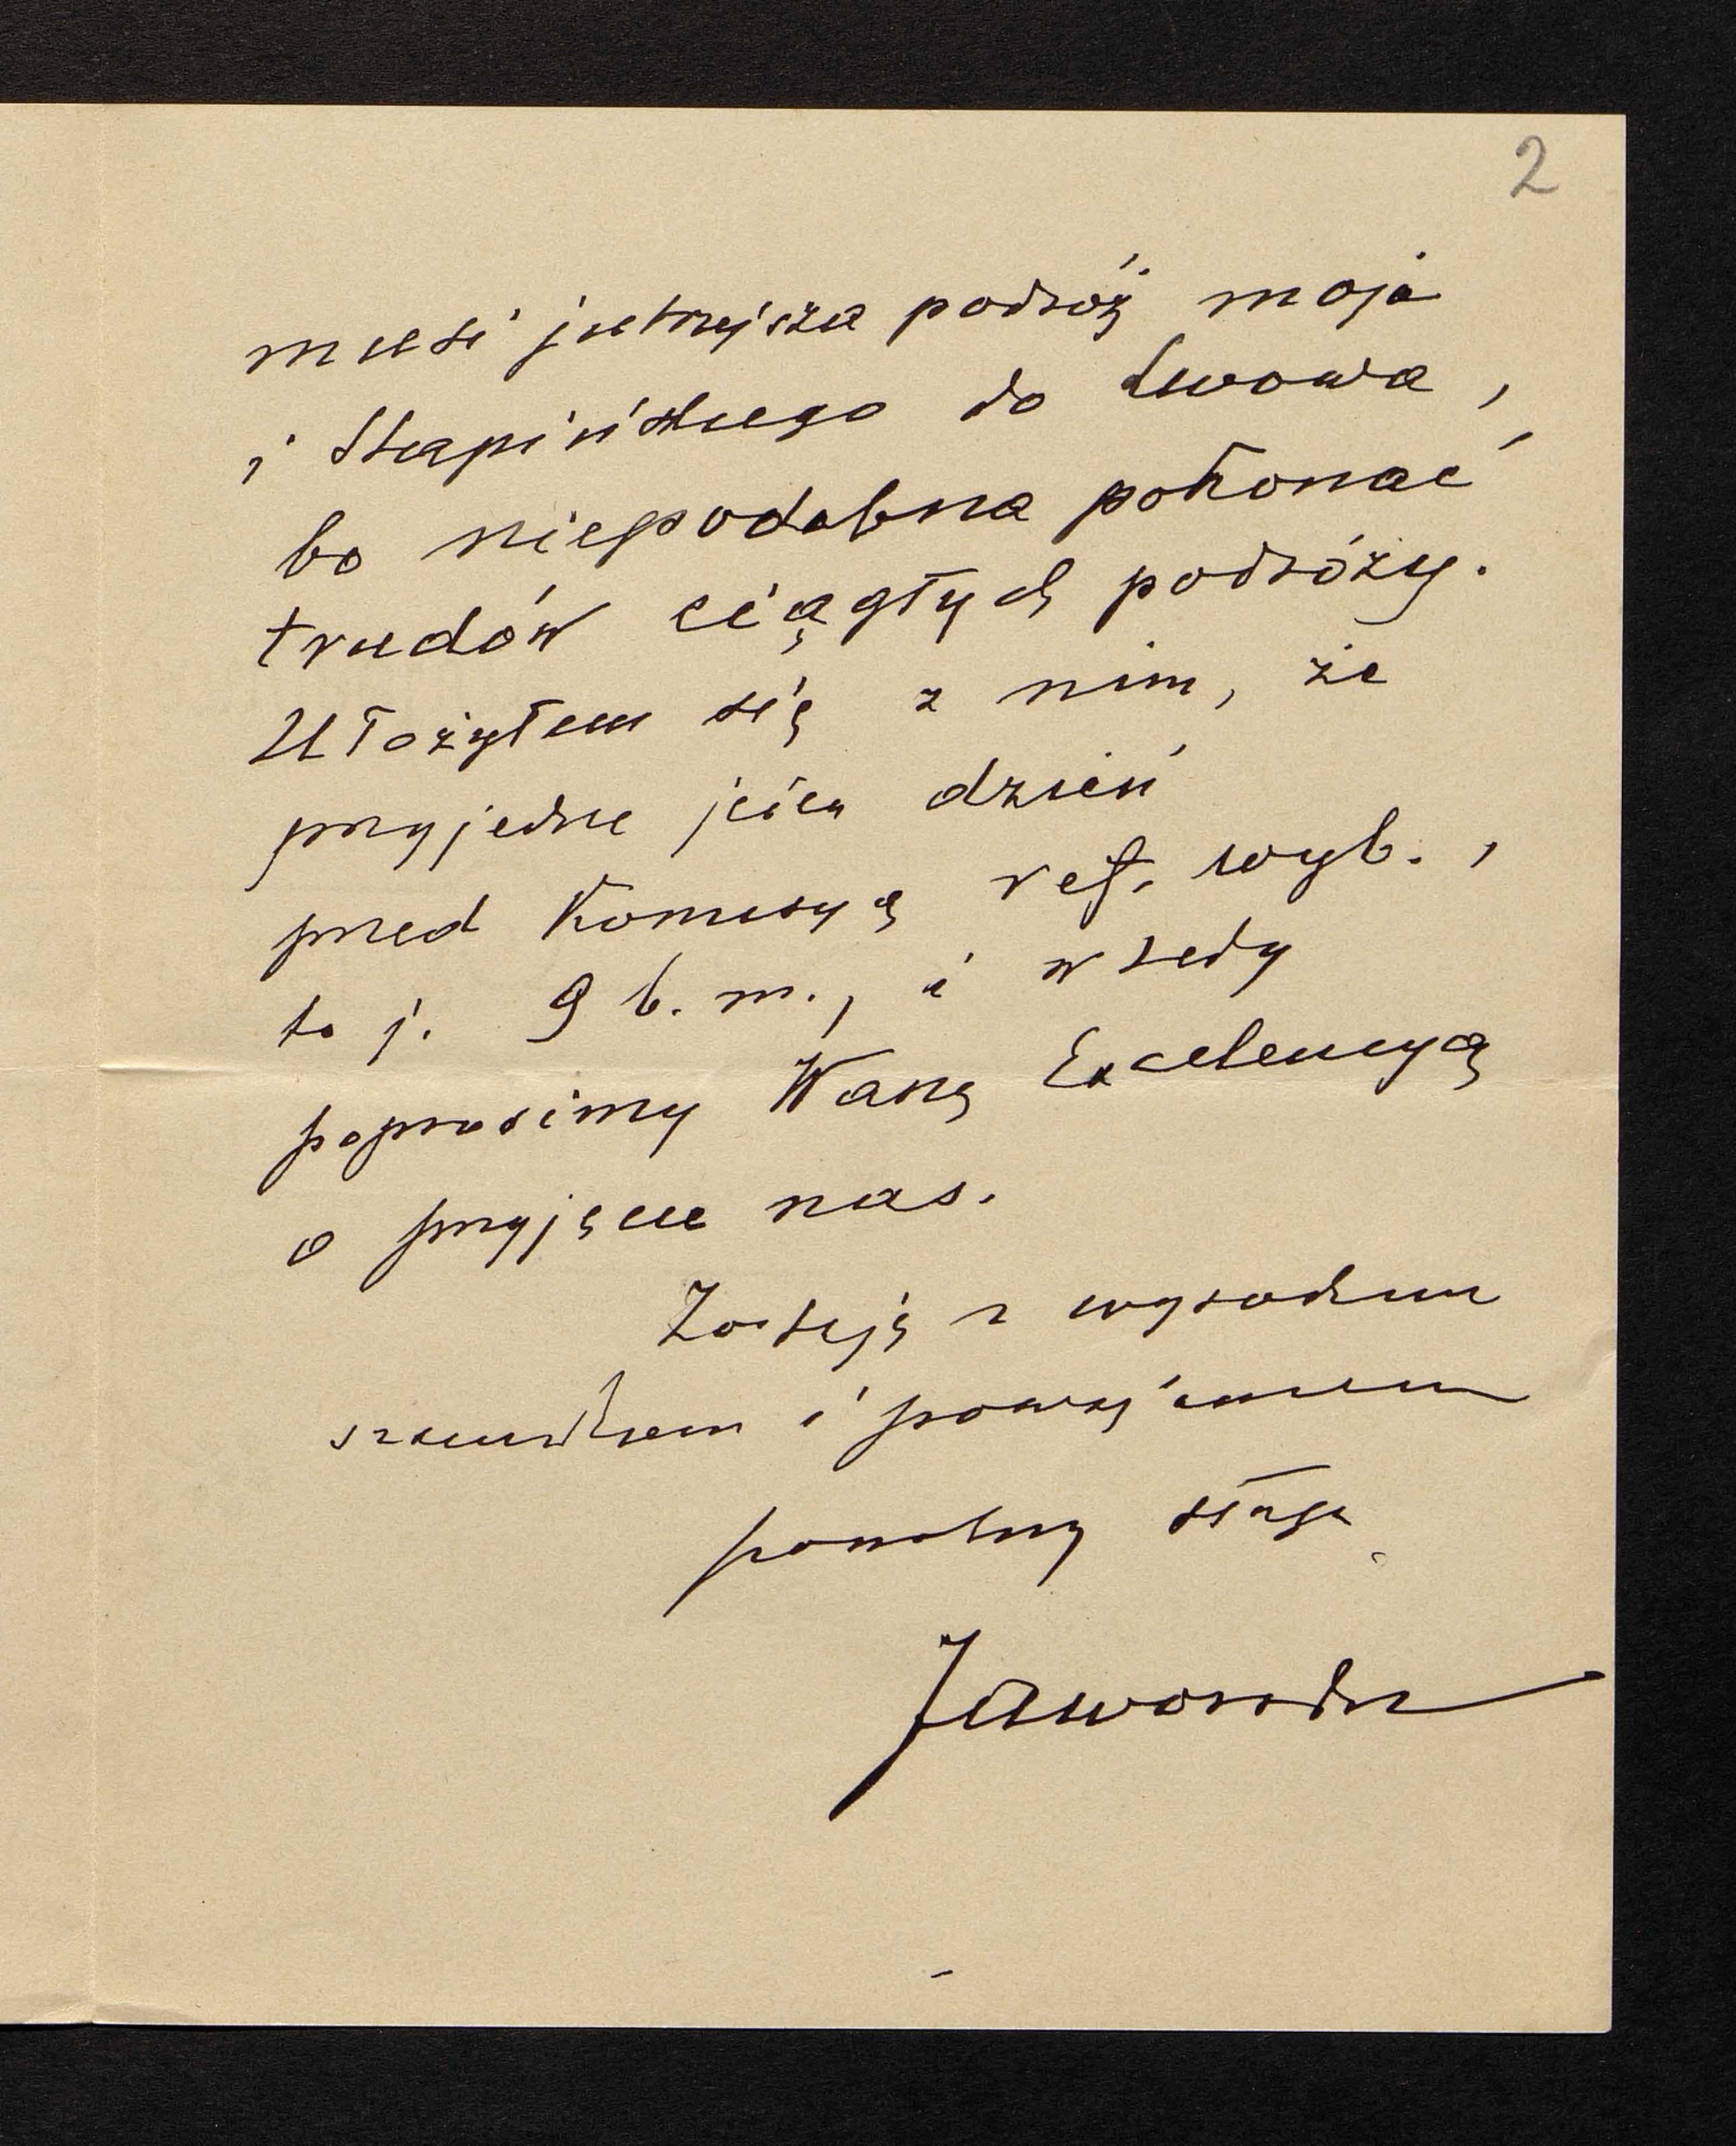 2
musi jutrzejsza podróż moja
i Stapińskiego do Lwowa,
bo niepodobna pokonać
trudów ciągłych podróży.
Ułożyłem się z nim, że
przyjedzie jeden dzień
przed Komisyą ref. wyb.,
to j. 9 b. m., i wtedy
poprosimy Waszą Excelencyą
o przyjęcie nas.
Zostaję z wysokim
szacunkiem i poważaniem
powolny sługa
Jaworski